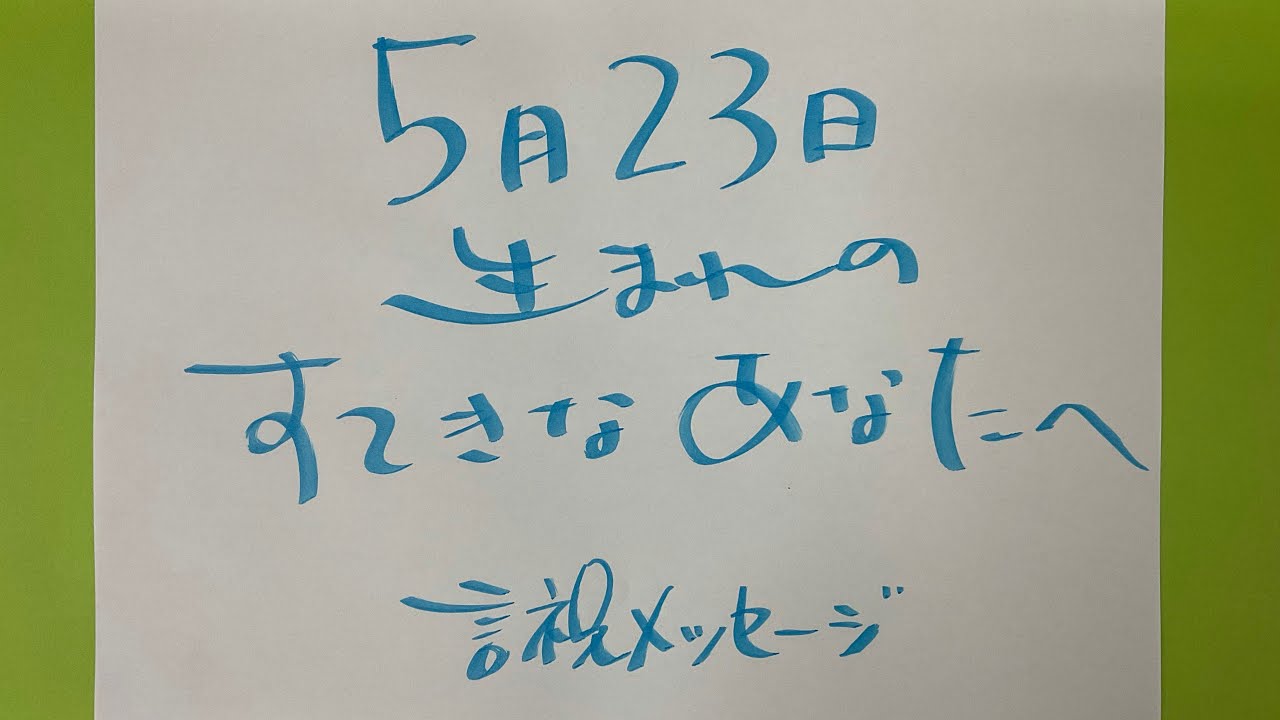 5月23日
生まれの
すてきなあなたへ
言祝メッセージ